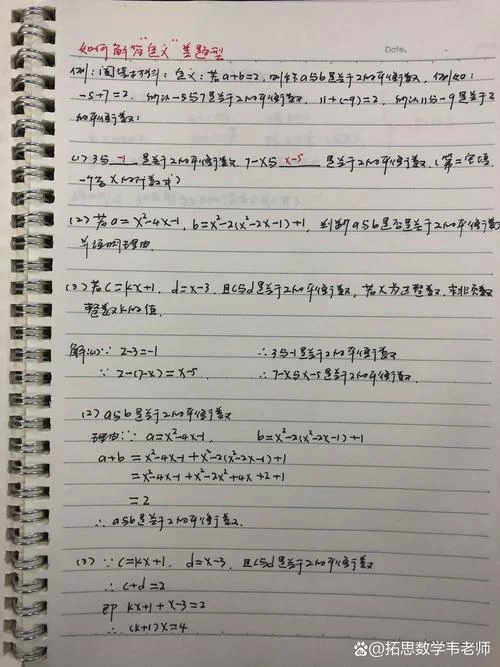 如何解答"定义"类题型
Date.
例:阅读材料:定义:若a+b=2,则称a与b是关于2的平衡数,例如:
-5+7=2,所以-5与7是关于2的平衡数,11+(-9)=2,所以11与-9是关于2
的平衡数:
(1)3与-1是关于2的平衡数,7-x与x-5是关于2的平衡数.(第二空填
一个含x的代数式)
(2)若a=x²-4x-1,b=x²-2(x²-2x-1)+1,判断a与b是否是关于2的平衡数
并说明理由.
(3)若c=kx+1,d=x-3,且c与d是关于2的平衡数,若x为正整数,求非负数
整数k的值.
解:(1)∵ 2-3=-1 ∴3与-1是关于2的平衡数
∵ 2-(7-x)=x-5 ∴7-x与x-5是关于2的平衡数.
(2)a与b是关于2的平衡数
理由:∵ a=x²-4x-1, b=x²-2(x²-2x-1)+1
a+b=x²-4x-1+x²-2(x²-2x-1)+1
=x²-4x-1+x²-2x²+4x+2+1
=2
∴a与b是关于2的平衡数.
(3)∵c=kx+1,d=x-3,且c与d是关于2的平衡数
∴c+d=2
即 kx+1+x-3=2
∴(k+1)x=4
@拓思数学韦老师